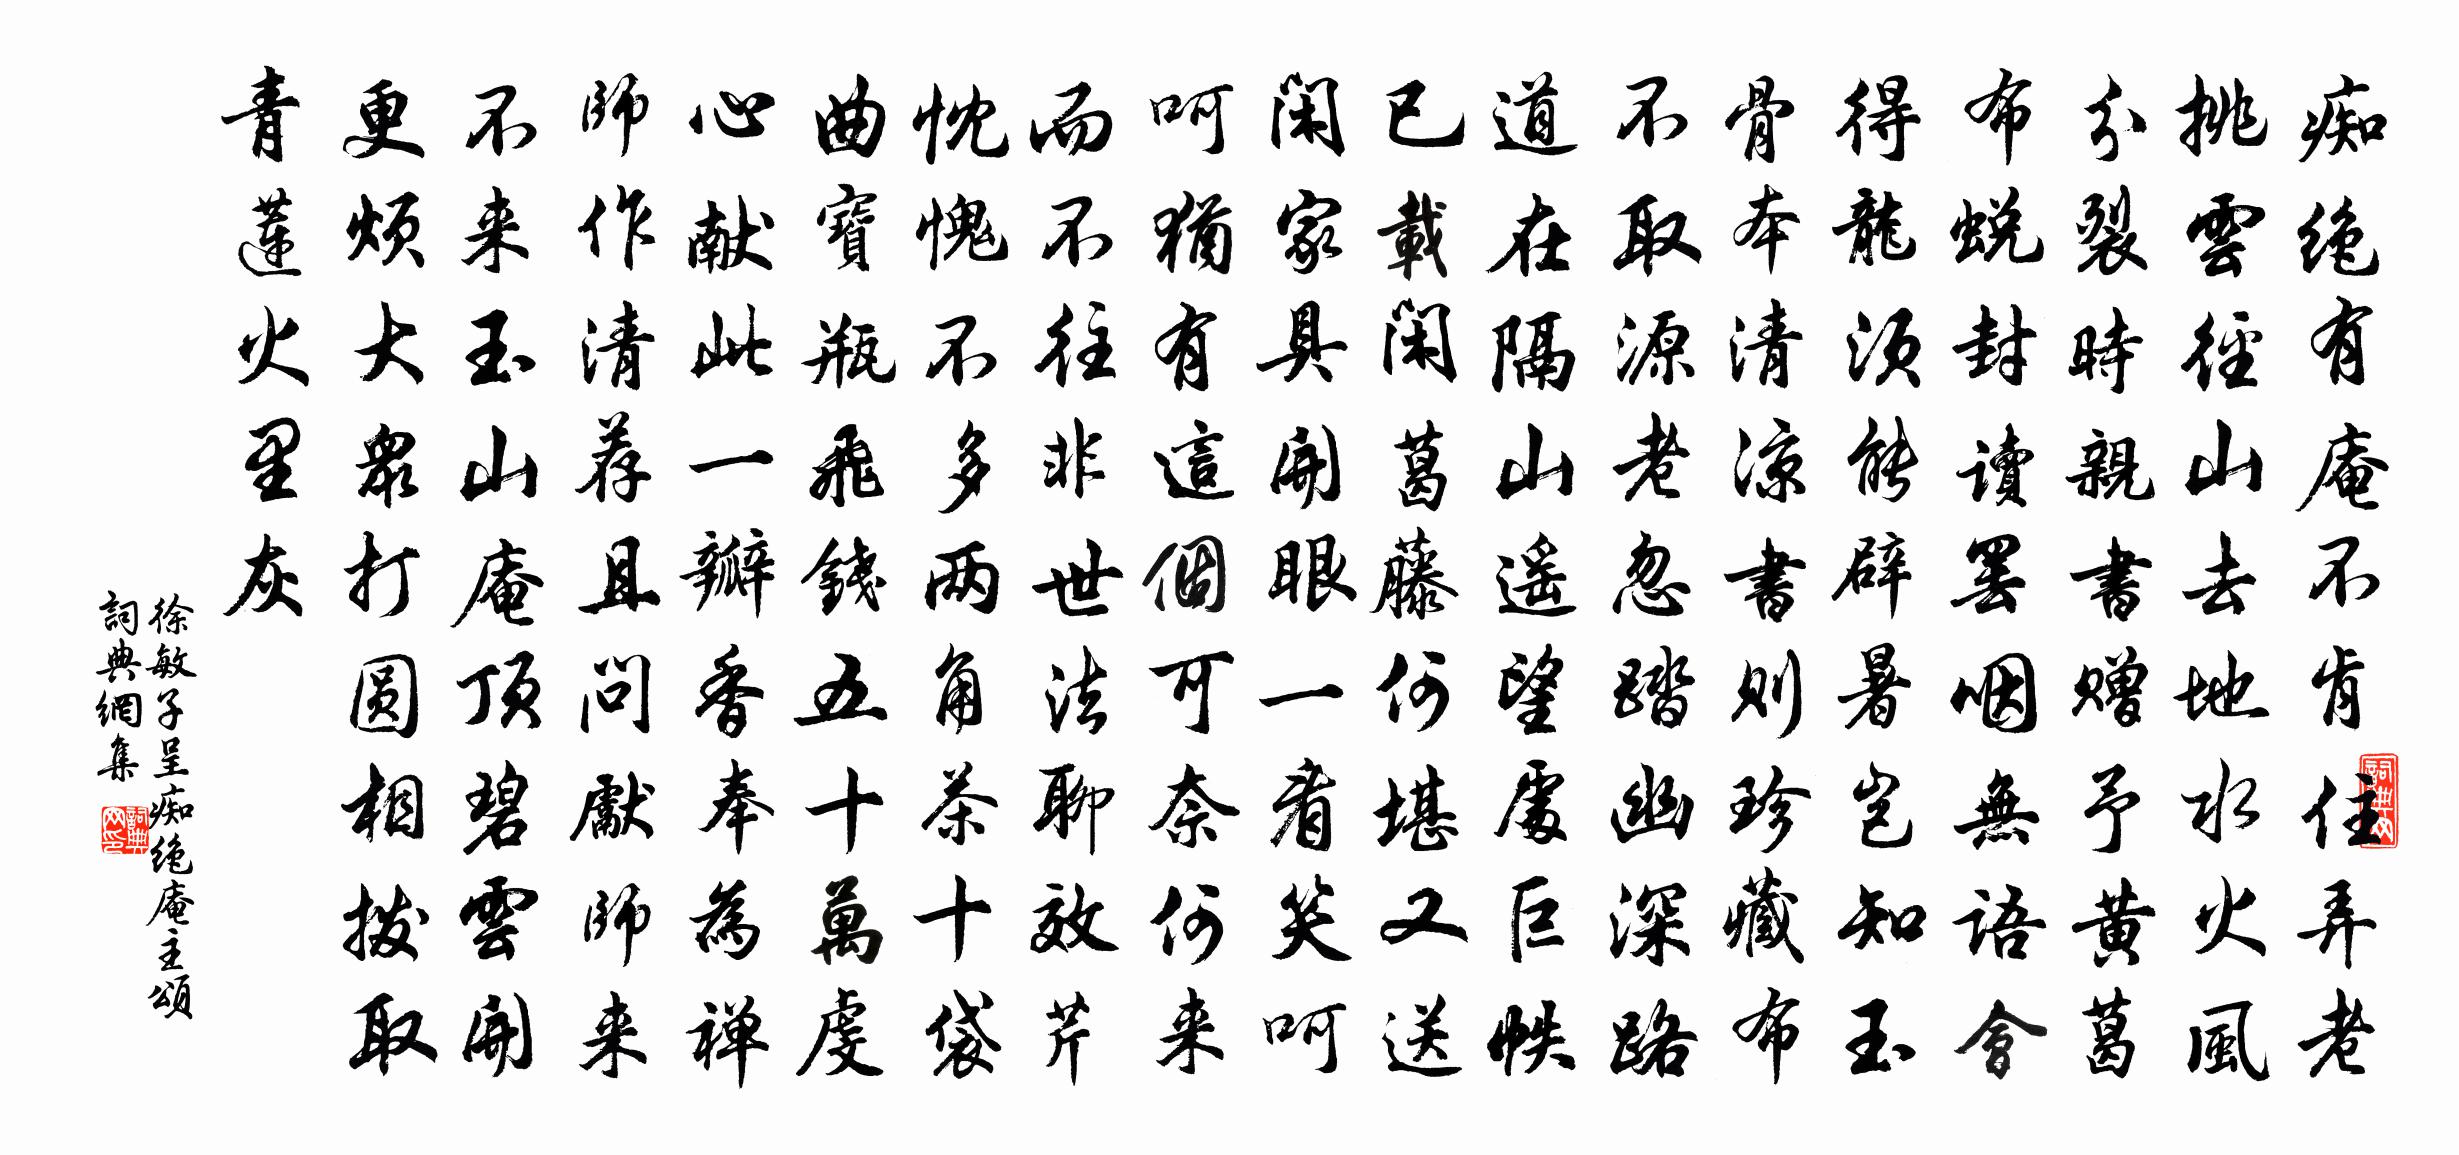 痴绝有庵不肯住弄老
挑雲径山去地水火風
分裂時親書贈予黄葛
布蜕封讀罢咽無語會
得龍须能辟暑岂知玉
骨本清凉書则珍藏布
不取源老忽踏幽深路
道在隔山遥望處巨帙
已載閑葛藤何堪又送
閑家具開眼一看笑呵
呵猶有這個可奈何来
而不往非世法聊效芹
忱愧不多两角茶十袋
曲寶瓶飛錢五十萬虔
心献此一瓣香奉為禅
師作清荐且問獻師来
不来玉山庵顶碧雲開
更烦大眾打圆相拨取
青莲火里灰
徐敏子呈痴绝庵主頌
詞典網集